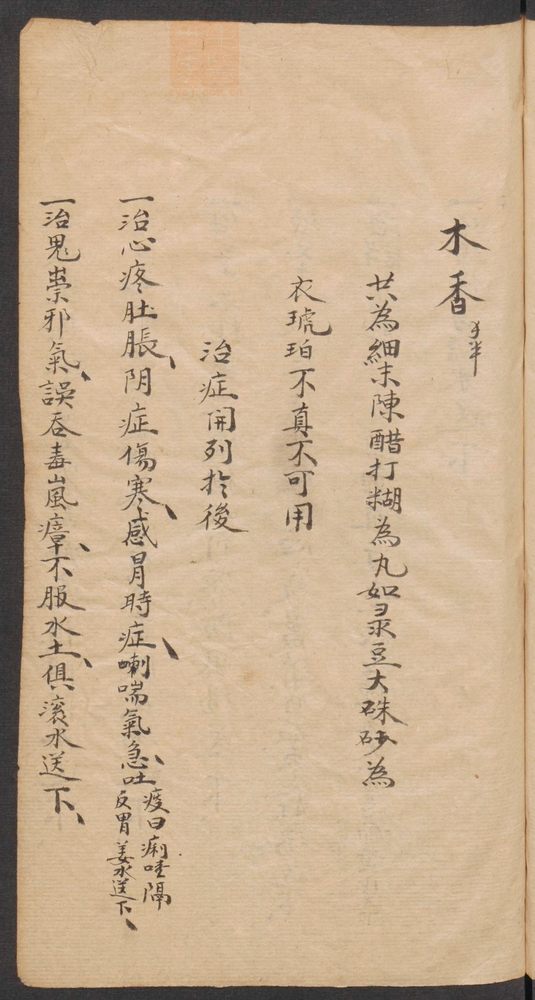 木香
共為細末陳醋打糊為丸如彔豆大硃砂為
衣琥珀不真不可用
治症開列扵後
一治心疼肚脹、阴症傷寒、感冒時症、喇喘氣急、吐
疫曰痢噎隔
反胃姜水送下、
一治鬼祟邪氣、誤吞毒嵐瘴、不服水土、俱滚水送下、